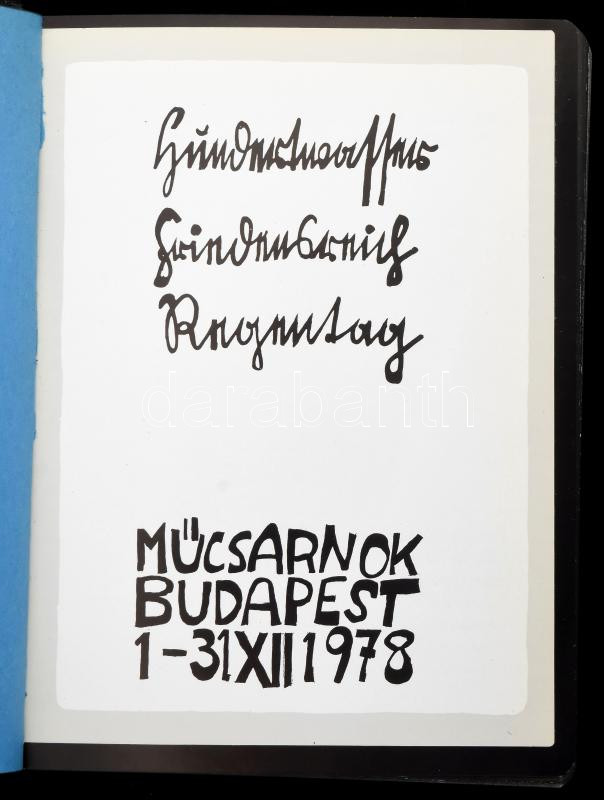 Hundertwassers
Friedensreich
Regentag
darabanth
MŰCSARNOK
BUDAPEST
1-31 XII 1978